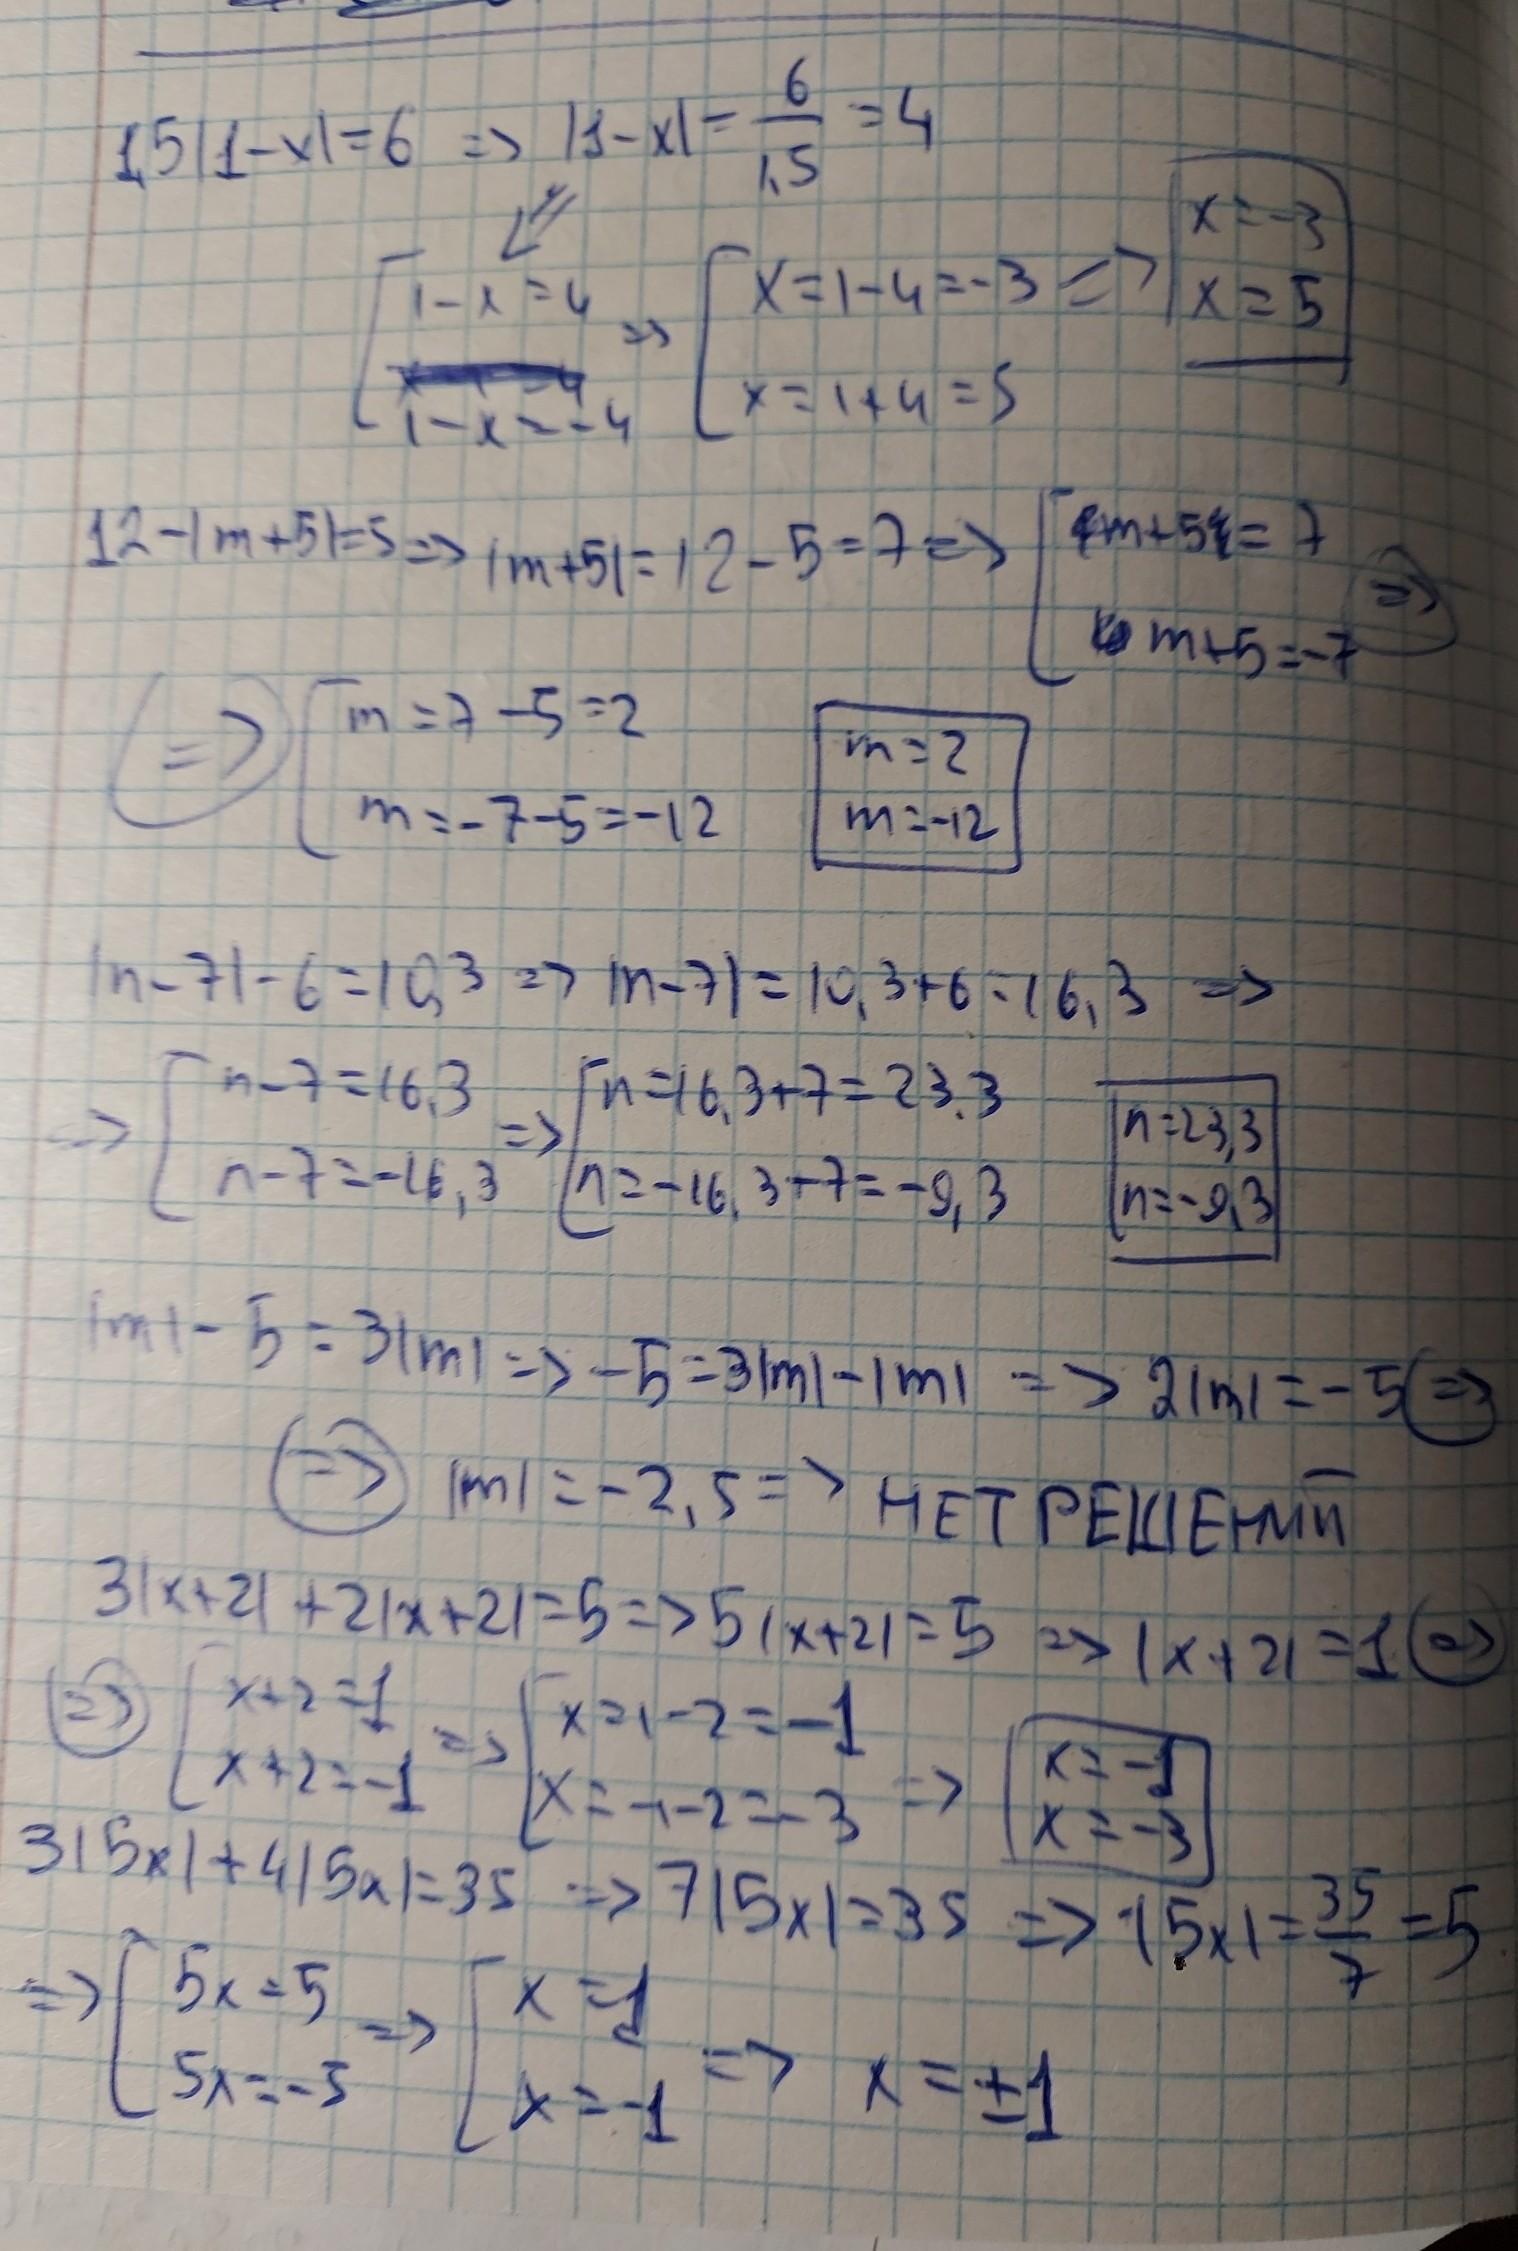 1,5|1-x|=6 => |1-x|= 6/1,5 =4
1-x=4 => x=1-4=-3 <=> x=-3
1-x=-4 x=1+4=5 x=5
12-|m+5|=5=>|m+5|=12-5=7=> m+5=7 =>
m+5=-7
=> m=7-5=2 m=2
m=-7-5=-12 m=-12
|n-7|-6=10,3 => |n-7|=10,3+6=16,3 =>
=> n-7=16,3 => n=16,3+7=23,3 n=23,3
n-7=-16,3 n=-16,3+7=-9,3 n=-9,3
|m|-5=3|m|=>-5=3|m|-|m| => 2|m|=-5 =>
=> |m|=-2,5=> НЕТ РЕШЕНИЙ
3|x+2|+2|x+2|=5=>5|x+2|=5 => |x+2|=1 =>
=> x+2=1 => x=1-2=-1 => x=-1
x+2=-1 x=-1-2=-3 x=-3
3|5x|+4|5x|=35 => 7|5x|=35 => |5x|= 35/7 =5
=> 5x=5 => x=1 => x=±1
5x=-5 x=-1